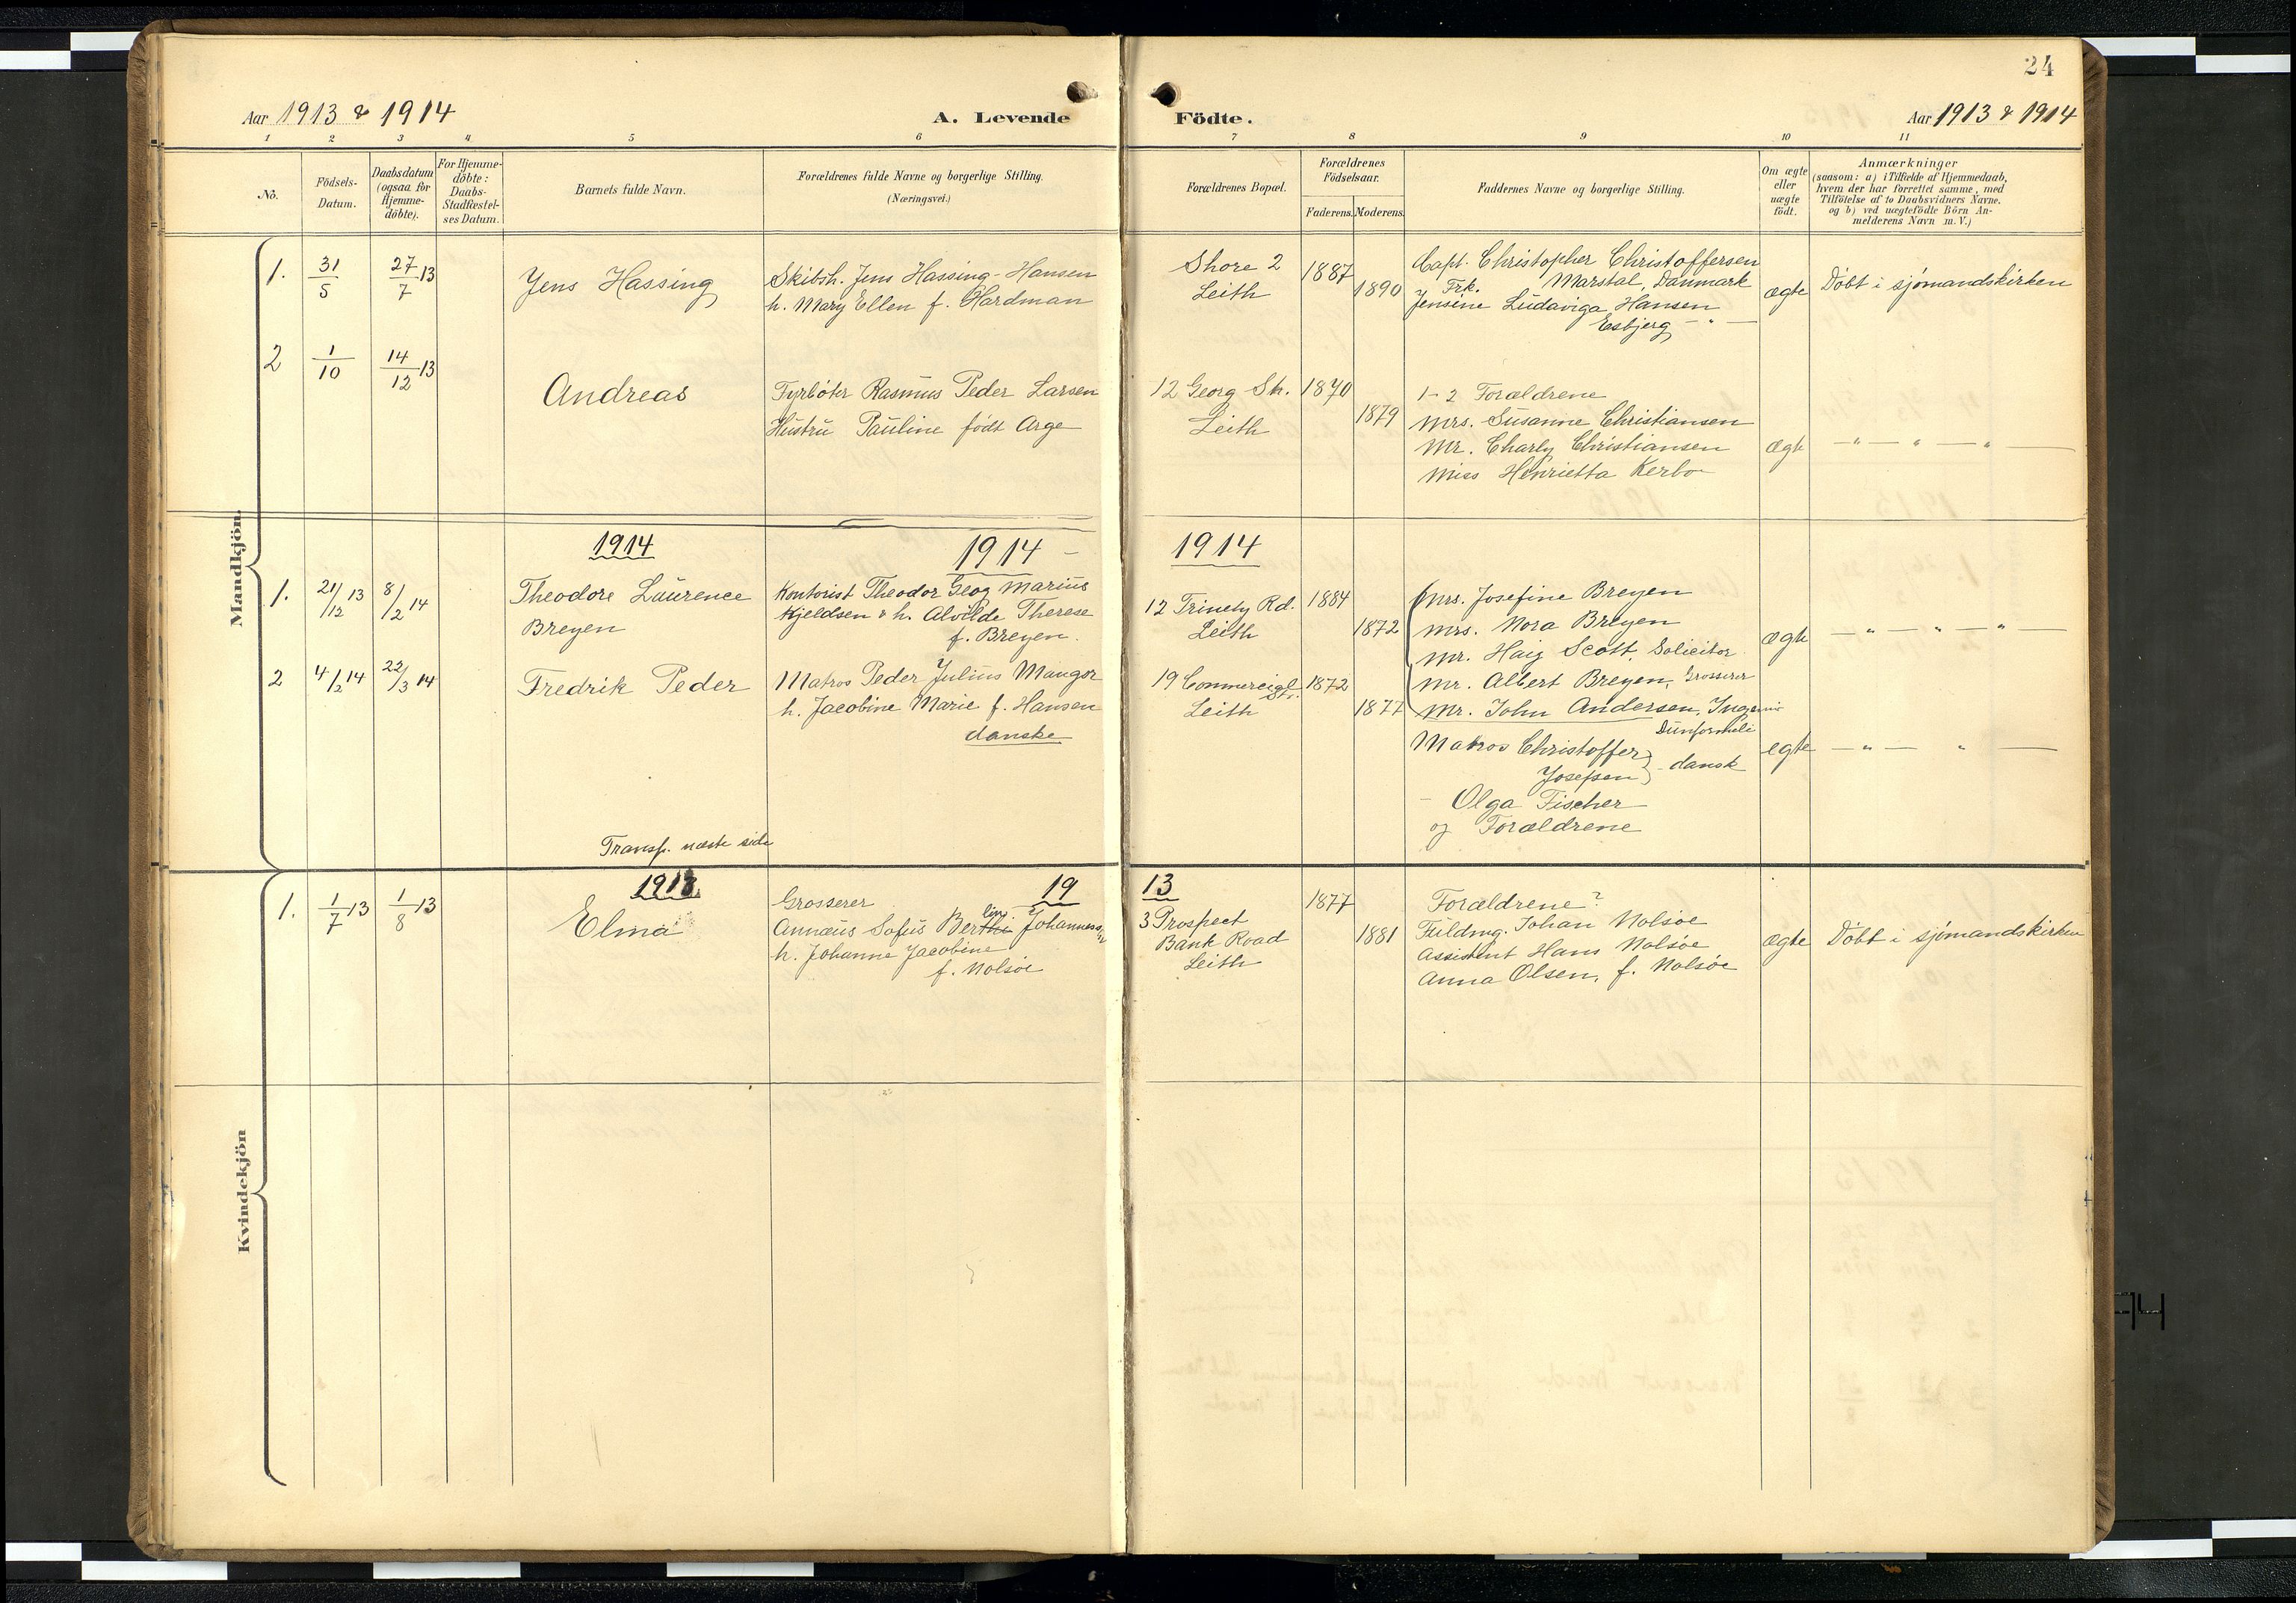 24
Aar 1913 & 1914
A. Levende
Födte.
Aar 1913 & 1914
1 2 3 4 5 6 7 8 9 10 11
No.
Födsels-
Datum.
Daabsdatum
(ogsaa for
Hjemme-
döbte).
For Hjemme-
döbte:
Daabs-
Stadfæstel-
ses Datum.
Barnets fulde Navn.
Forældrenes fulde Navne og borgerlige Stilling.
(Næringsvei.)
Forældrenes Bopæl.
Forældrenes
Födselsaar.
Faderens. Moderens.
Faddernes Navne og borgerlige Stilling.
Om ægte
eller
uægte
födt.
Anmærkninger
(saasom: a) i Tilfælde af Hjemmedaab,
hvem der har forrettet samme, med
Tilföielse af to Daabsvidners Navne.
og b) ved uægtefödte Börn An-
melderens Navn m.V.)
Mandkjön
1.
31/5
27/7 13
Jens Hassing
Skibsh. Jens Hassing-Hansen
h. Mary Ellen f. Hardman
Shore 2
Leith
1887
1890
Capt. Christopher Christoffersen
Frk. Marstal, Danmark
Jensine Ludaviga Hansen
Esbjerg — " —
ægte
Døbt i sjömandskirken
2
1/10
14/12 13
Andreas
Fyrböter Rasmus Peder Larsen
Hustru Pauline født Arge
12 Georg Str.
Leith
1870
1879
1-2 Forældrene
Mrs. Susanne Christiansen
Mr. Charly Christiansen
Miss Henrietta Kerbo
Ægte
— " — " — " —
1914
1914 -
1914
1.
21/12 13
8/2 14
Theodore Laurence
Breyen
Kontorist Theodor Geog Marius
Kjeldsen & h. Alvilde Therese
f. Breyen.
12 Trinety Rd.
Leith
1884
1872
Mrs. Josefine Breyen
Mrs. Nora Breyen
Mr. Haig Scott, Solicitor
Mr. Albert Breyen, Grosserer
Mr. John Andersen, Ingeniör
Ægte
— " — " — " —
2
4/2 14
22/3 14
Fredrik Peder
Matros Peder Julius Mangor
h. Jacobine Marie f. Hansen
danske
19 Commercial
Str.
Leith
1872
1877
Matros Christoffer
Josefsen } - dansk
- Olga Fischer
og Forældrene
egte
— " — " —
Transp. næste side
Kvindekjön
1913
19
13
1.
1/7 13
1/8 13
Elma
Grosserer
Annæus Sofus Berthi lin Johannessen
h. Johanne Jacobine
f. Nolsöe
3 Prospect
Bank Road
Leith
1877
1881
Forældrene?
Fuldmg. Johan Nolsöe
Assistent Hans Nolsöe
Anna Olsen, f. Nolsöe
ægte
Døbt i sjömandskirken